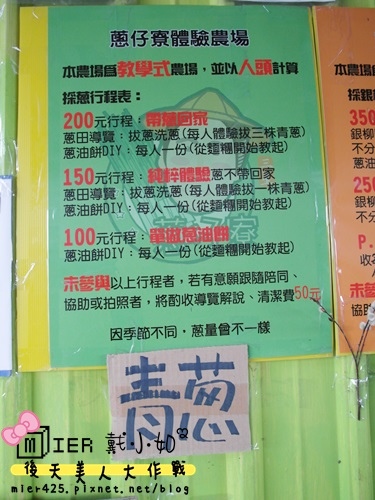 蔥仔寮體驗農場
本農場為教學式農場，並以人頭計算
採蔥行程表：
200元行程：帶蔥回家
蔥田導覽：拔蔥洗蔥(每人體驗拔三株青蔥)
蔥油餅DIY：每人一份(從麵糰開始教起)
150元行程：純粹體驗蔥不帶回家
蔥田導覽：拔蔥洗蔥(每人體驗拔一株青蔥)
蔥油餅DIY：每人一份(從麵糰開始教起)
100元行程：單做蔥油餅
蔥油餅DIY：每人一份(從麵糰開始教起)
未參與以上行程者，若有意願跟隨陪同、
協助或拍照者，將酌收導覽解說、清潔費50元
因季節不同，蔥量會不一樣
採銀
350
銀柳
不分
250
銀柳
不分
P.
收為
未參
協助
青蔥
MIER 戴小如
後天美人大作戰
mier425.pixnet.net/blog